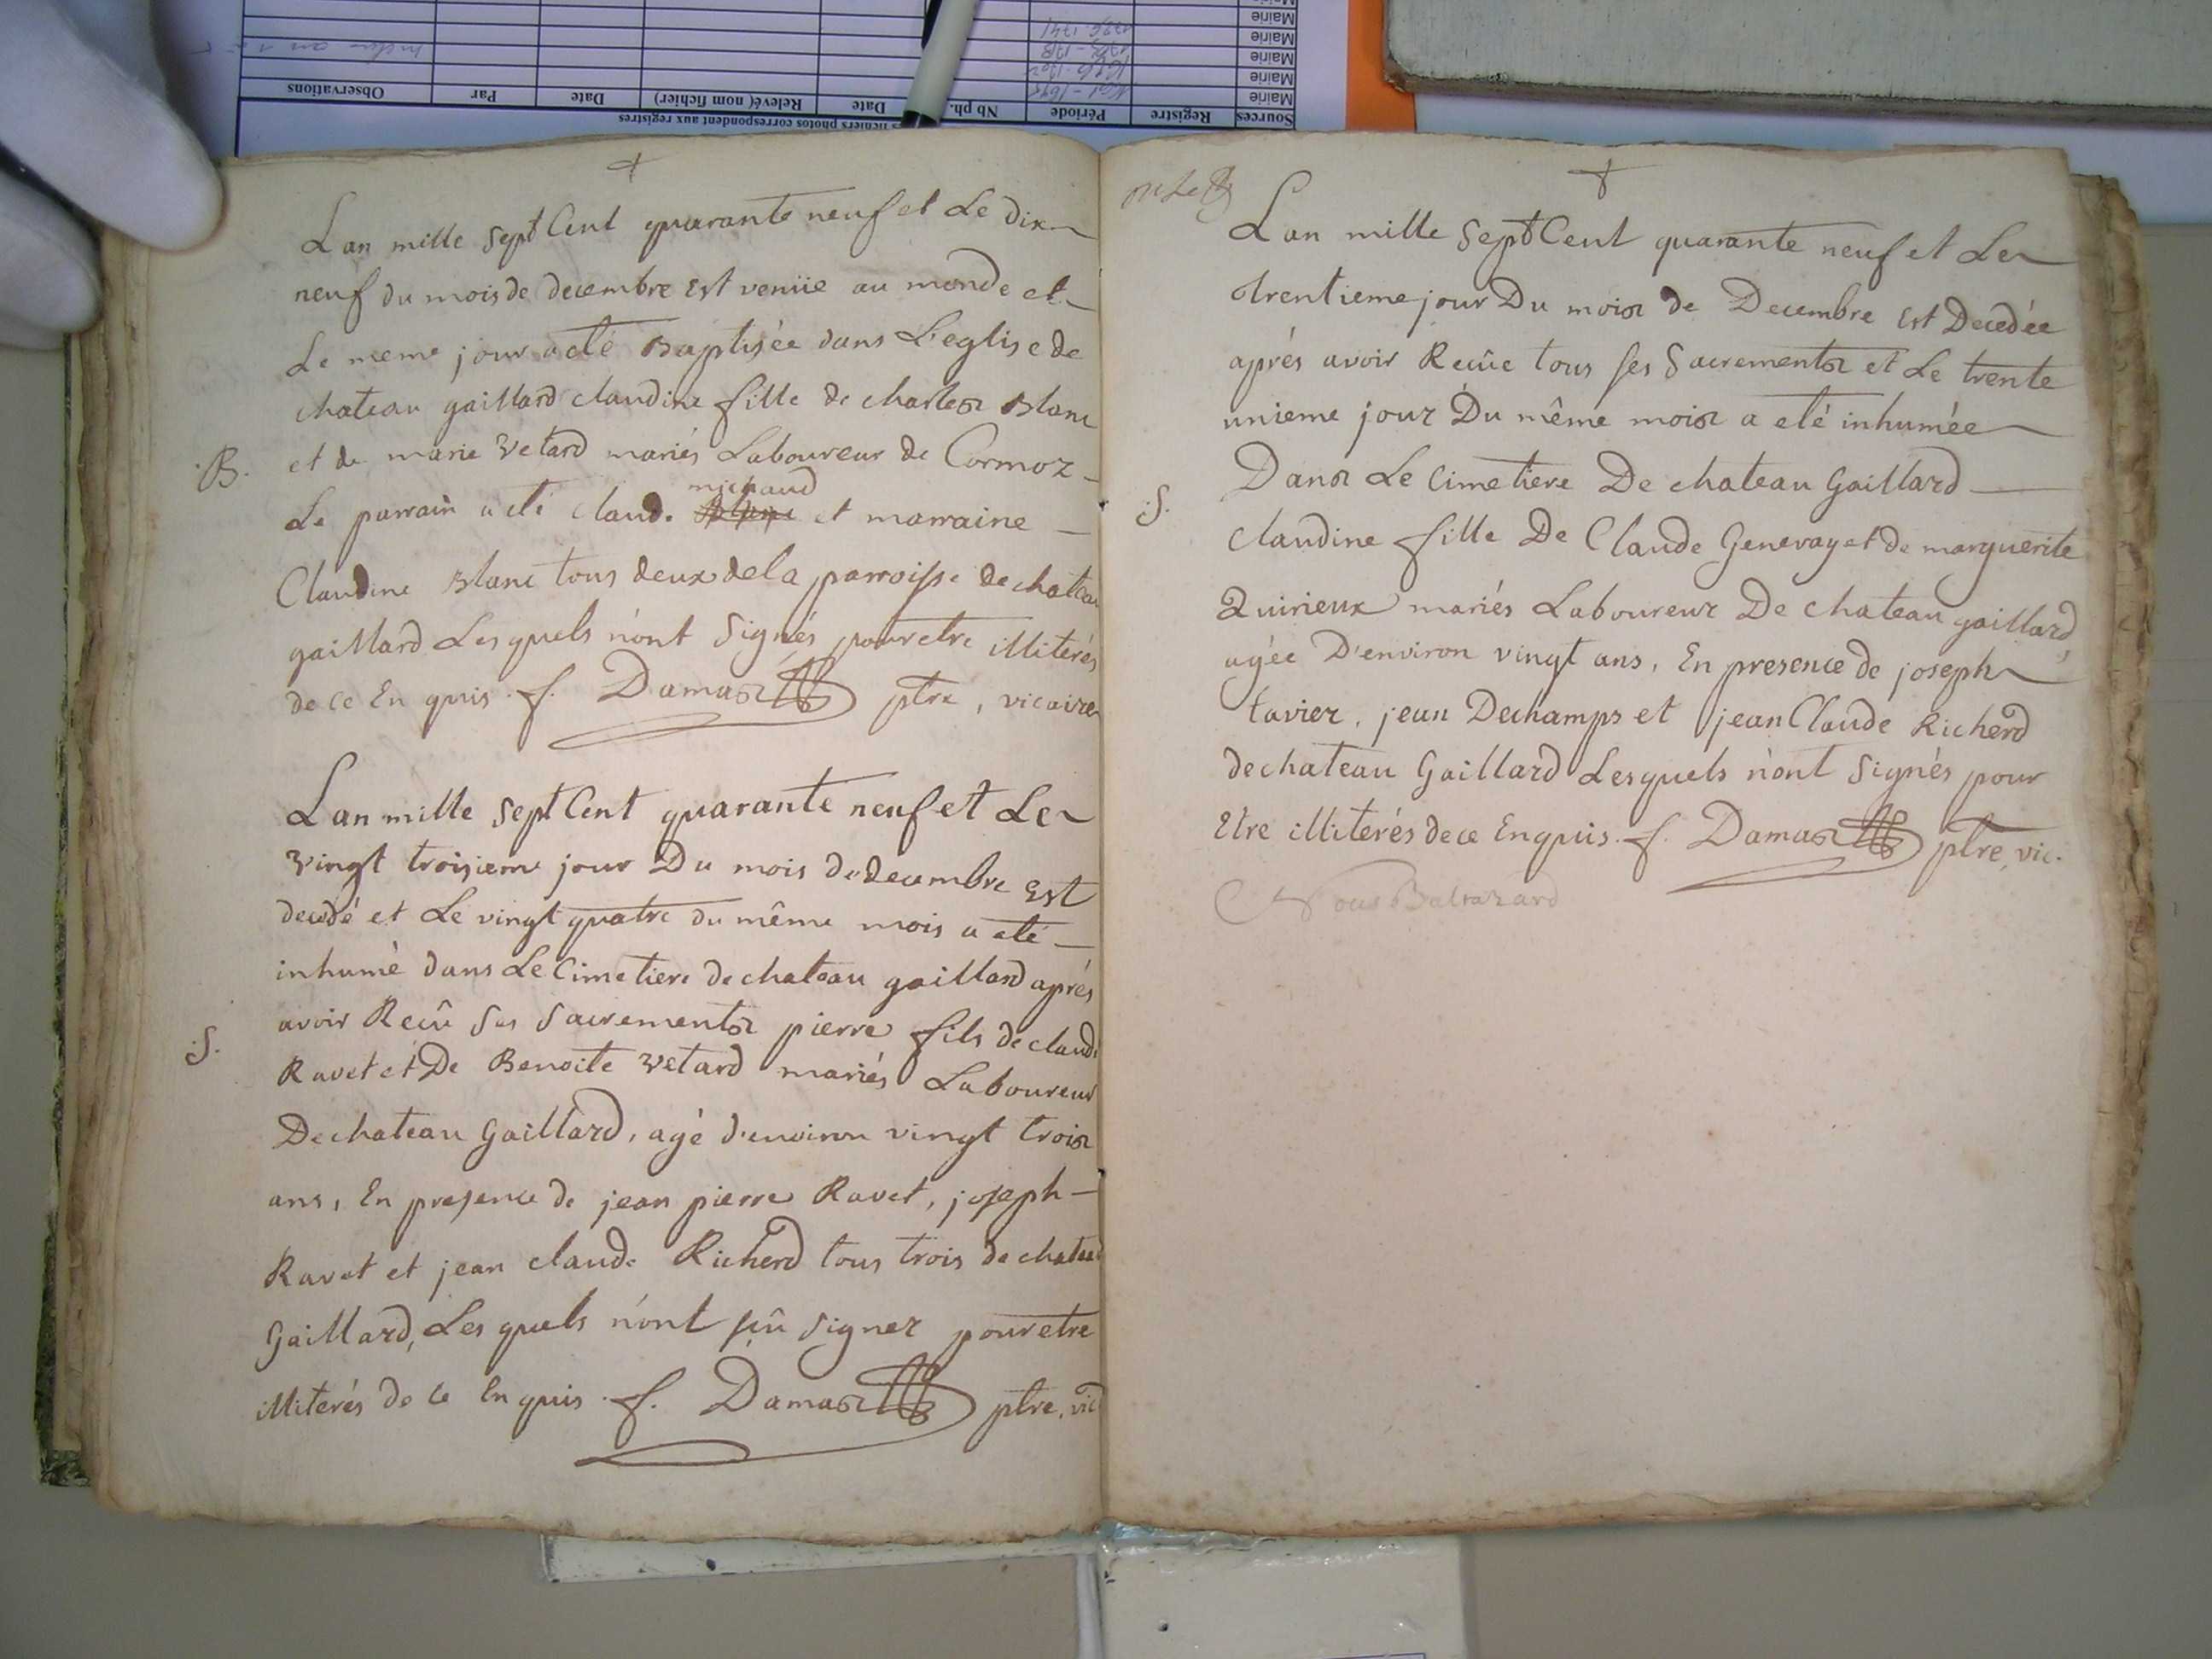 L'an mille sept Cent quarante neuf et Le dix
neuf du mois de decembre Est venüe au monde et
Le meme jour a eté Baptisée dans L'eglise de
chateau gaillard claudine fille de charles Blanc
B. et de marie vetard mariés Laboureur de Cormoz
michaud
Le parrain a eté claude Blanc et marraine
Claudine Blanc tous deux de la parroisse de chateau
gaillard Lesquels n'ont Signés pour etre illiterés
de ce Enquis. f. Damas ptre, vicaire
L'an mille sept Cent quarante neuf et Le
vingt troisieme jour Du mois de decembre Est
decedé et Le vingt quatre du même mois a eté
inhumé dans Le Cimetiere de chateau gaillard aprés
avoir Reçû Ses Sacrements pierre fils de claude
S. Ravet et De Benoite vetard mariés Laboureur
De chateau Gaillard, agé d'environ vingt trois
ans, En presence de jean pierre Ravet, joseph
Ravet et jean claude Richerd tous trois de chateau
Gaillard, Lesquels n'ont sçû signer pour etre
illiterés de ce Enquis. f. Damas ptre, vic
L'an mille Sept Cent quarante neuf et Le
trentieme jour Du mois de Decembre Est Decedée
aprés avoir Reçûe tous ses Sacrements et Le trente
unieme jour Du même mois a eté inhumée
Dans Le Cimetiere De chateau Gaillard
S. claudine fille De Claude Genevay et de marguerite
Quirieux mariés Laboureur De chateau gaillard,
agée D'environ vingt ans, En presence de joseph
tavier, jean Dechamps et jean Claude Richerd
de chateau Gaillard Lesquels n'ont Signés pour
Etre illiterés de ce Enquis. f. Damas ptre, vic.
Nous Baltazard
Sources Registre Période Nb ph. Date Relevé( nom fichier) Date Par Observations
Mairie
Mairie
Mairie
Mairie
Mairie